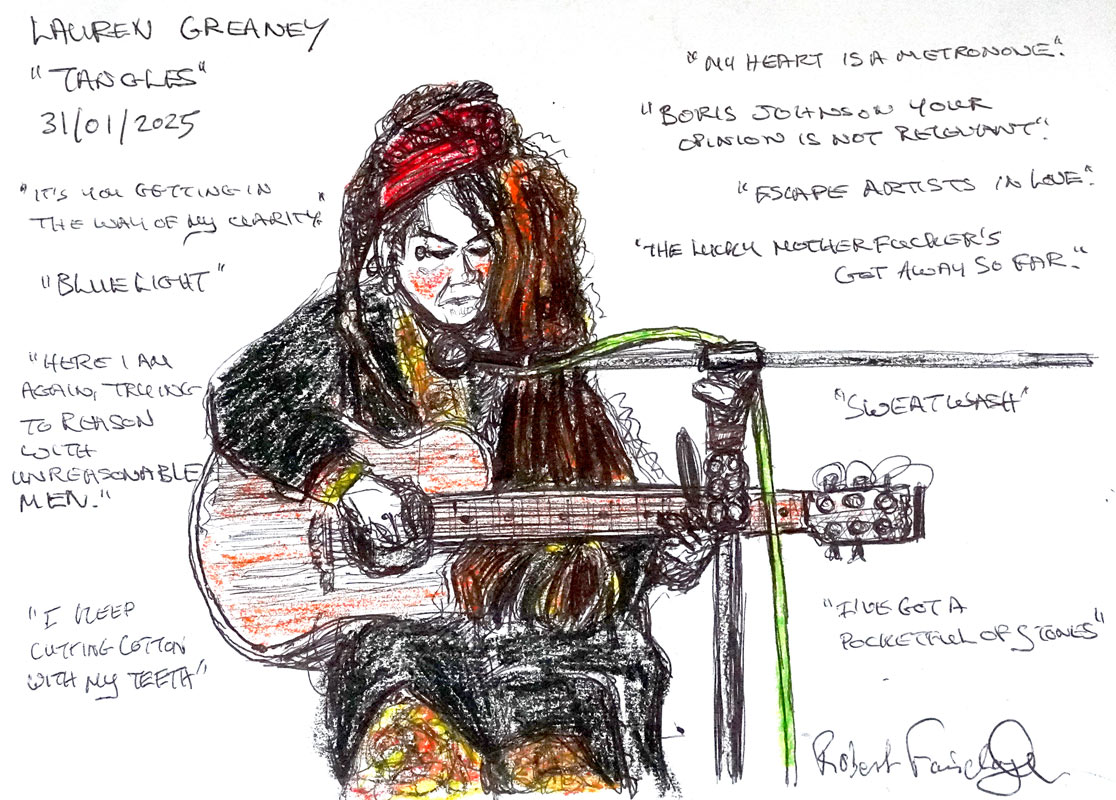 LAUREN GREANEY
"TANGLES"
31/01/2025
"IT'S YOU GETTING IN
THE WAY OF MY CLARITY."
"BLUE LIGHT"
"HERE I AM
AGAIN, TRYING
TO REASON
WITH
UNREASONABLE
MEN."
"I KEEP
CUTTING COTTON
WITH MY TEETH"
"MY HEART IS A METRONONE".
"BORIS JOHNSON YOUR
OPINION IS NOT RELEVANT".
"ESCAPE ARTISTS IN LOVE".
"THE LUCKY MOTHERFUCKER'S
GOT AWAY SO FAR."
"SWEATWASH"
"I'VE GOT A
POCKETFUL OF STONES"
Robert